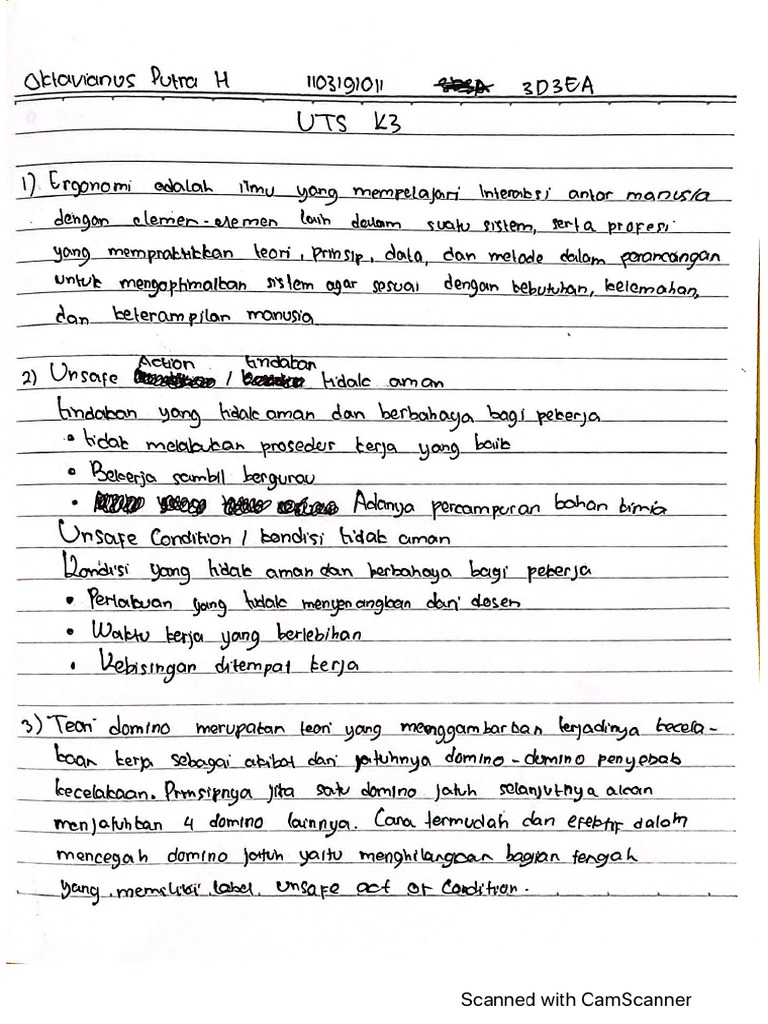 Oktavianus Putra H 1103191011 3D3EA
UTS K3
1) Ergonomi adalah ilmu yang mempelajari Interaksi antar manusia
dengan elemen-elemen lain dalam suatu sistem, serta profesi
yang mempraktikkan teori, prinsip, data, dan metode dalam perancangan
untuk mengoptimalkan sistem agar sesuai dengan kebutuhan, kelemahan,
dan keterampilan manusia
Action tindakan
2) Unsafe / tidak aman
tindakan yang tidak aman dan berbahaya bagi pekerja
• tidak melakukan prosedur kerja yang baik
• Bekerja sambil bergurau
• Adanya percampuran bahan kimia
Unsafe Condition / kondisi tidak aman
Kondisi yang tidak aman dan berbahaya bagi pekerja
• Perlakuan yang tidak menyenangkan dari dosen
• Waktu kerja yang berlebihan
• Kebisingan ditempat kerja
3) Teori domino merupakan teori yang menggambarkan terjadinya kecela-
kaan kerja sebagai akibat dari jatuhnya domino-domino penyebab
kecelakaan. Prinsipnya jika satu domino jatuh selanjutnya akan
menjatuhkan 4 domino lainnya. Cara termudah dan efektif dalam
mencegah domino jatuh yaitu menghilangkan bagian tengah
yang memiliki label unsafe act or condition.
Scanned with CamScanner